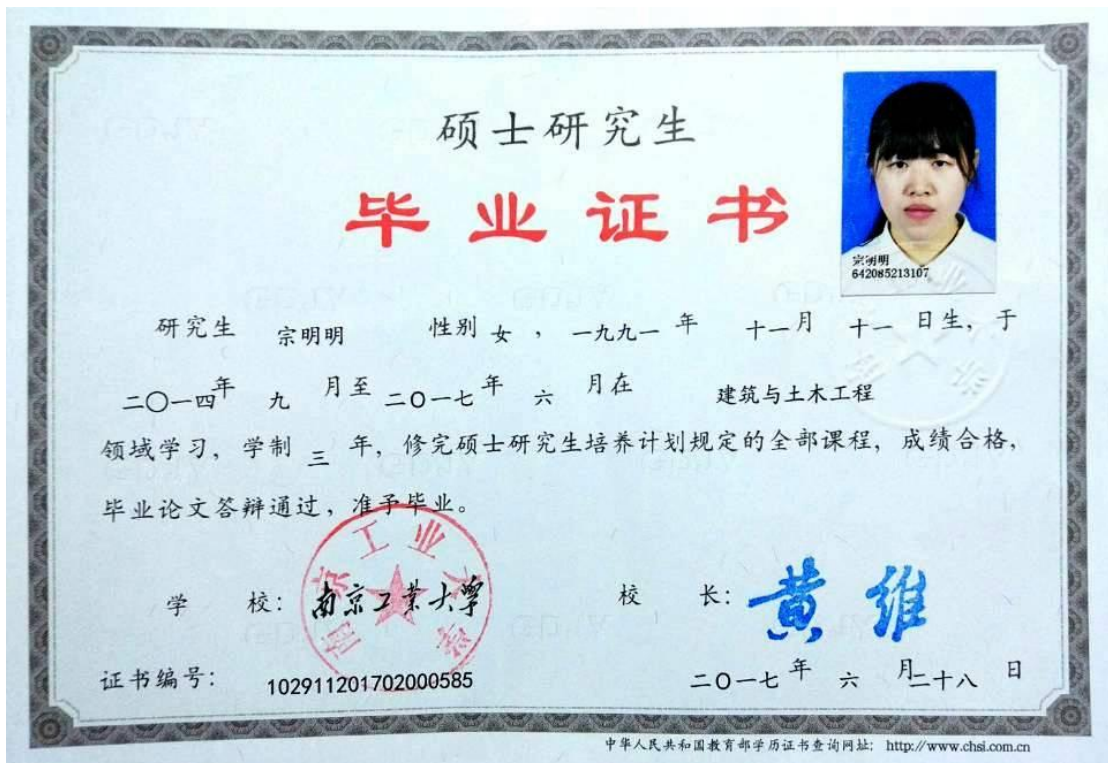 硕士研究生
毕业证书
宗明明
642085213107
研究生 宗明明 性别 女 ， 一九九一 年 十一 月 十一 日生，于
二〇一四 年 九 月至 二0一七 年 六 月在 建筑与土木工程
领域学习，学制 三 年，修完硕士研究生培养计划规定的全部课程，成绩合格，
毕业论文答辩通过，准予毕业。
南京工业大学
学 校：南京工业大学 校 长：黄维
证书编号： 102911201702000585 二0一七 年 六 月 二十八 日
中华人民共和国教育部学历证书查询网址：http://www.chsi.com.cn